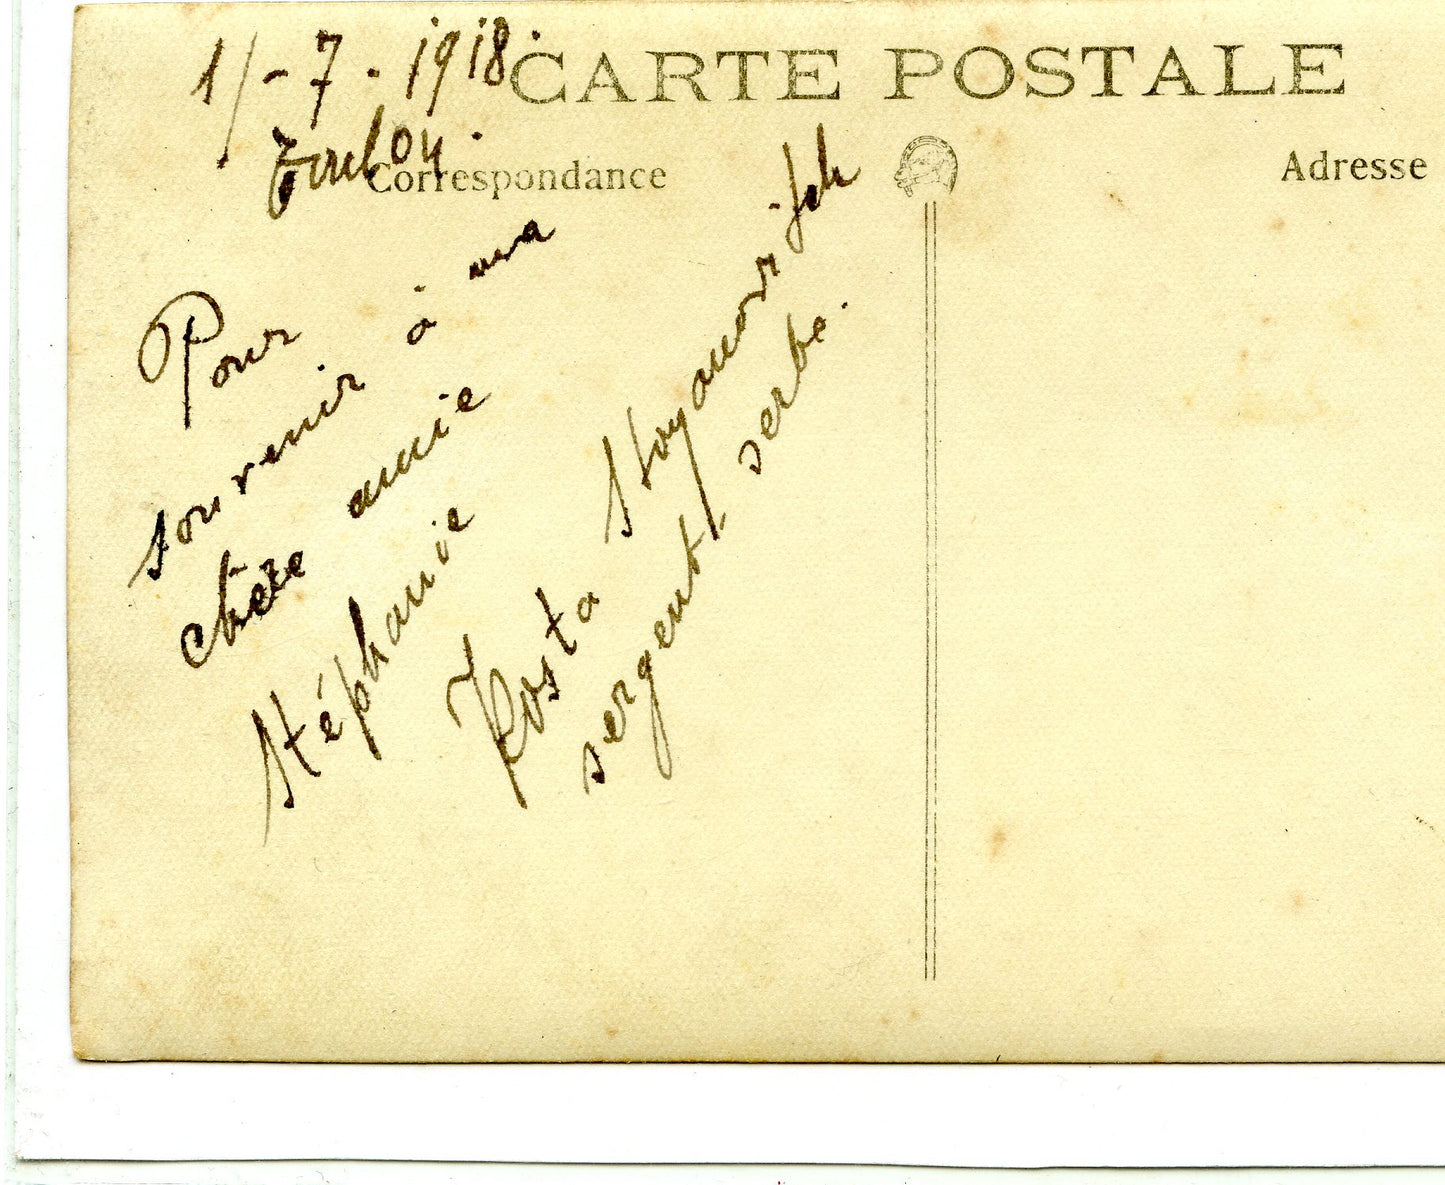 1/-7-1918.
CARTE POSTALE
Toulon.
Correspondance
Adresse
Pour
souvenir à ma
chère amie
Stéphanie
Kosta Stoyanovitch
sergent-serbe.